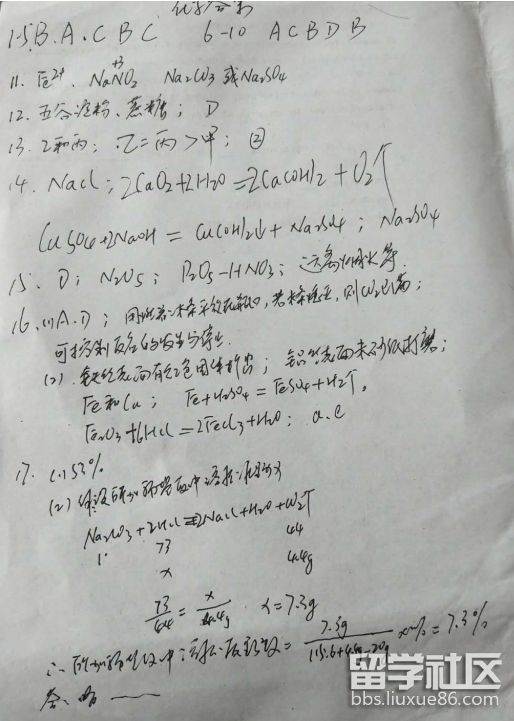 化学答案
1-5 B.A.C B C 6-10 A C B D B
11. Fe²⁺、NaNO₂ +3 Na₂CO₃或Na₂SO₄
12. 蔗糖; D
13. 乙和丙; 乙=丙>甲; ②
14. NaCl; 2CaO₂+2H₂O=2Ca(OH)₂+O₂↑
CuSO₄+2NaOH=Cu(OH)₂↓+Na₂SO₄; Na₂SO₄
15. D; N₂O₅; P₂O₅-HNO₃; 远离水等.
16. (1) A.D; 则CO₂已满;
可控制反应的发生与停止.
(2) 铁丝表面有红色固体析出; 铝丝表面未打磨;
Fe和Cu; Fe+H₂SO₄=FeSO₄+H₂↑,
Fe₂O₃+6HCl=2FeCl₃+H₂O; a.c
17. (1) 53%
(2) 解设所加稀盐酸中溶质质量为x
Na₂CO₃+2HCl=2NaCl+H₂O+CO₂↑
73 44
x 4.4g
73/44=x/4.4g x=7.3g
∴所加稀盐酸中溶质质量分数=7.3g/(115.6+4.4g-20g)×%=7.3%
答: 略
留学社区
bbs.liuxue86.com